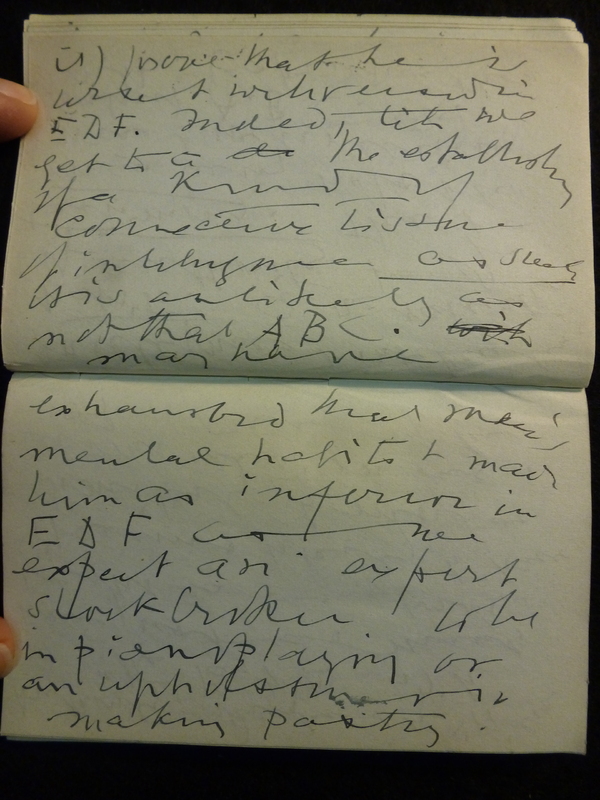 it) prove that he is
well versed in
E D F. Indeed, till we
get to a the establishing
of a kind of
connective tissue
of intelligence as such
it is as likely as
not that A B C. with
may have
exhausted that man's
mental habits & made
him as inferior in
E D F as we
expect an expert
stockbroker to be
in pianoplaying or
an upholsterer in
making pastry.